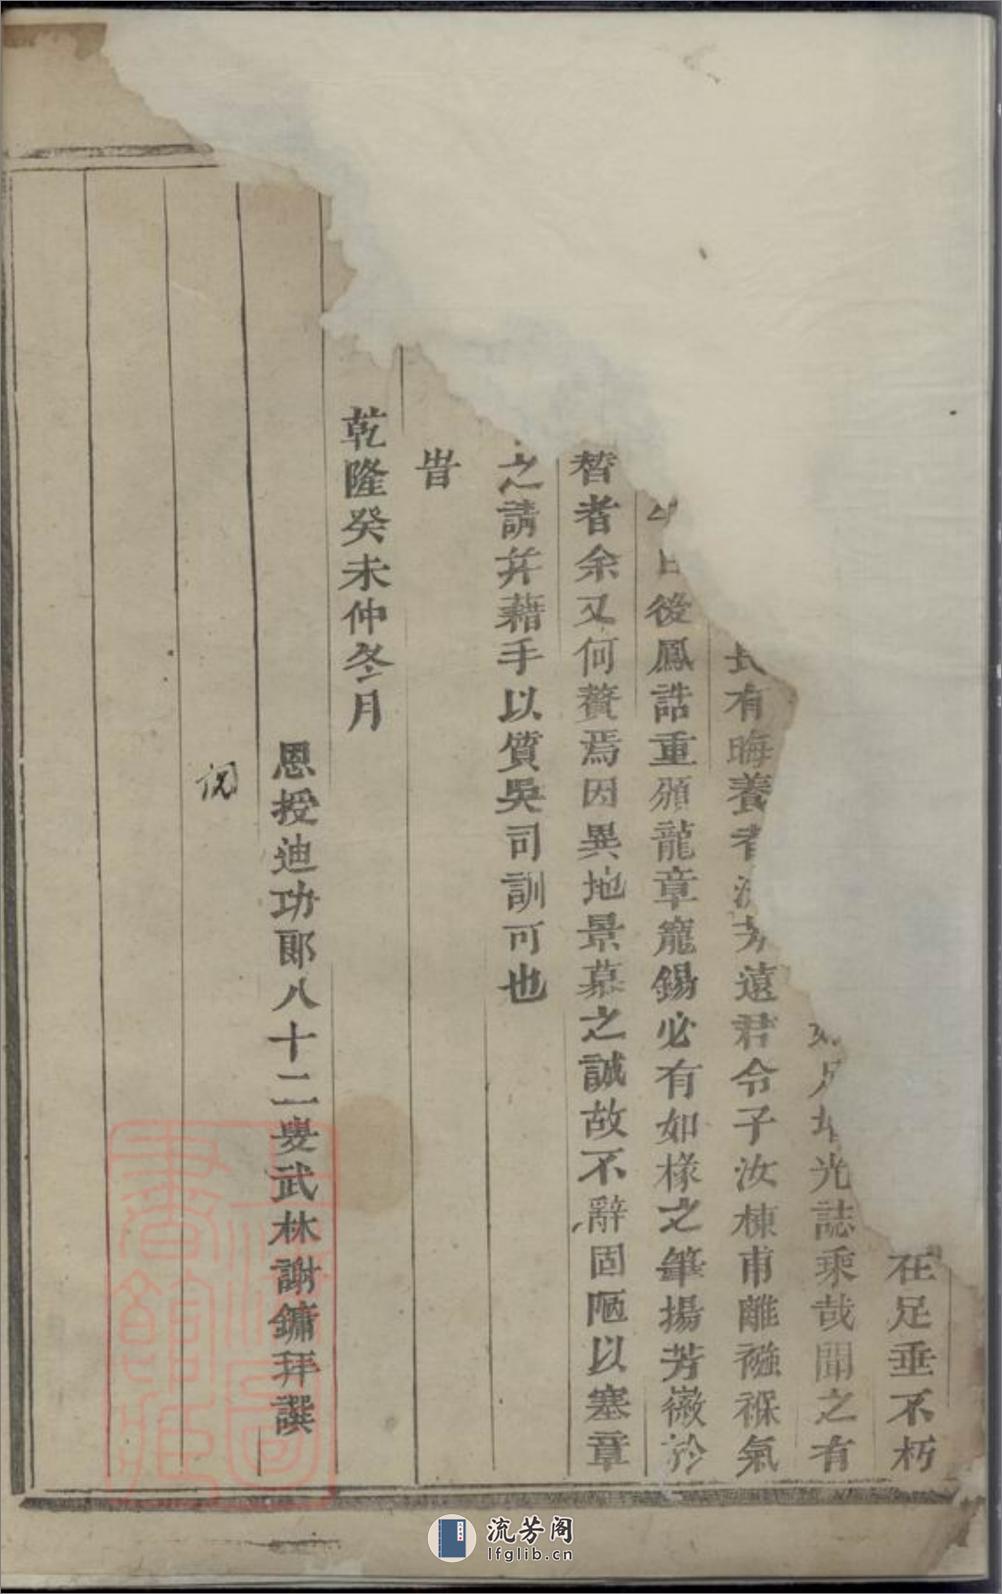 在足垂不朽
光誌乘哉聞之有
長有晦養者 遠君令子汝棟甫離襁褓氣
日後鳳誥重頒龍章寵錫必有如椽之筆揚芳徽於
替者余又何贅焉因異地景慕之誠故不辭固陋以塞章
之請并藉手以質吳司訓可也
旹
乾隆癸未仲冬月
恩授迪功郎八十二叟武林謝鏞拜譔
上海圖
書館藏
流芳阁
lfglib.cn